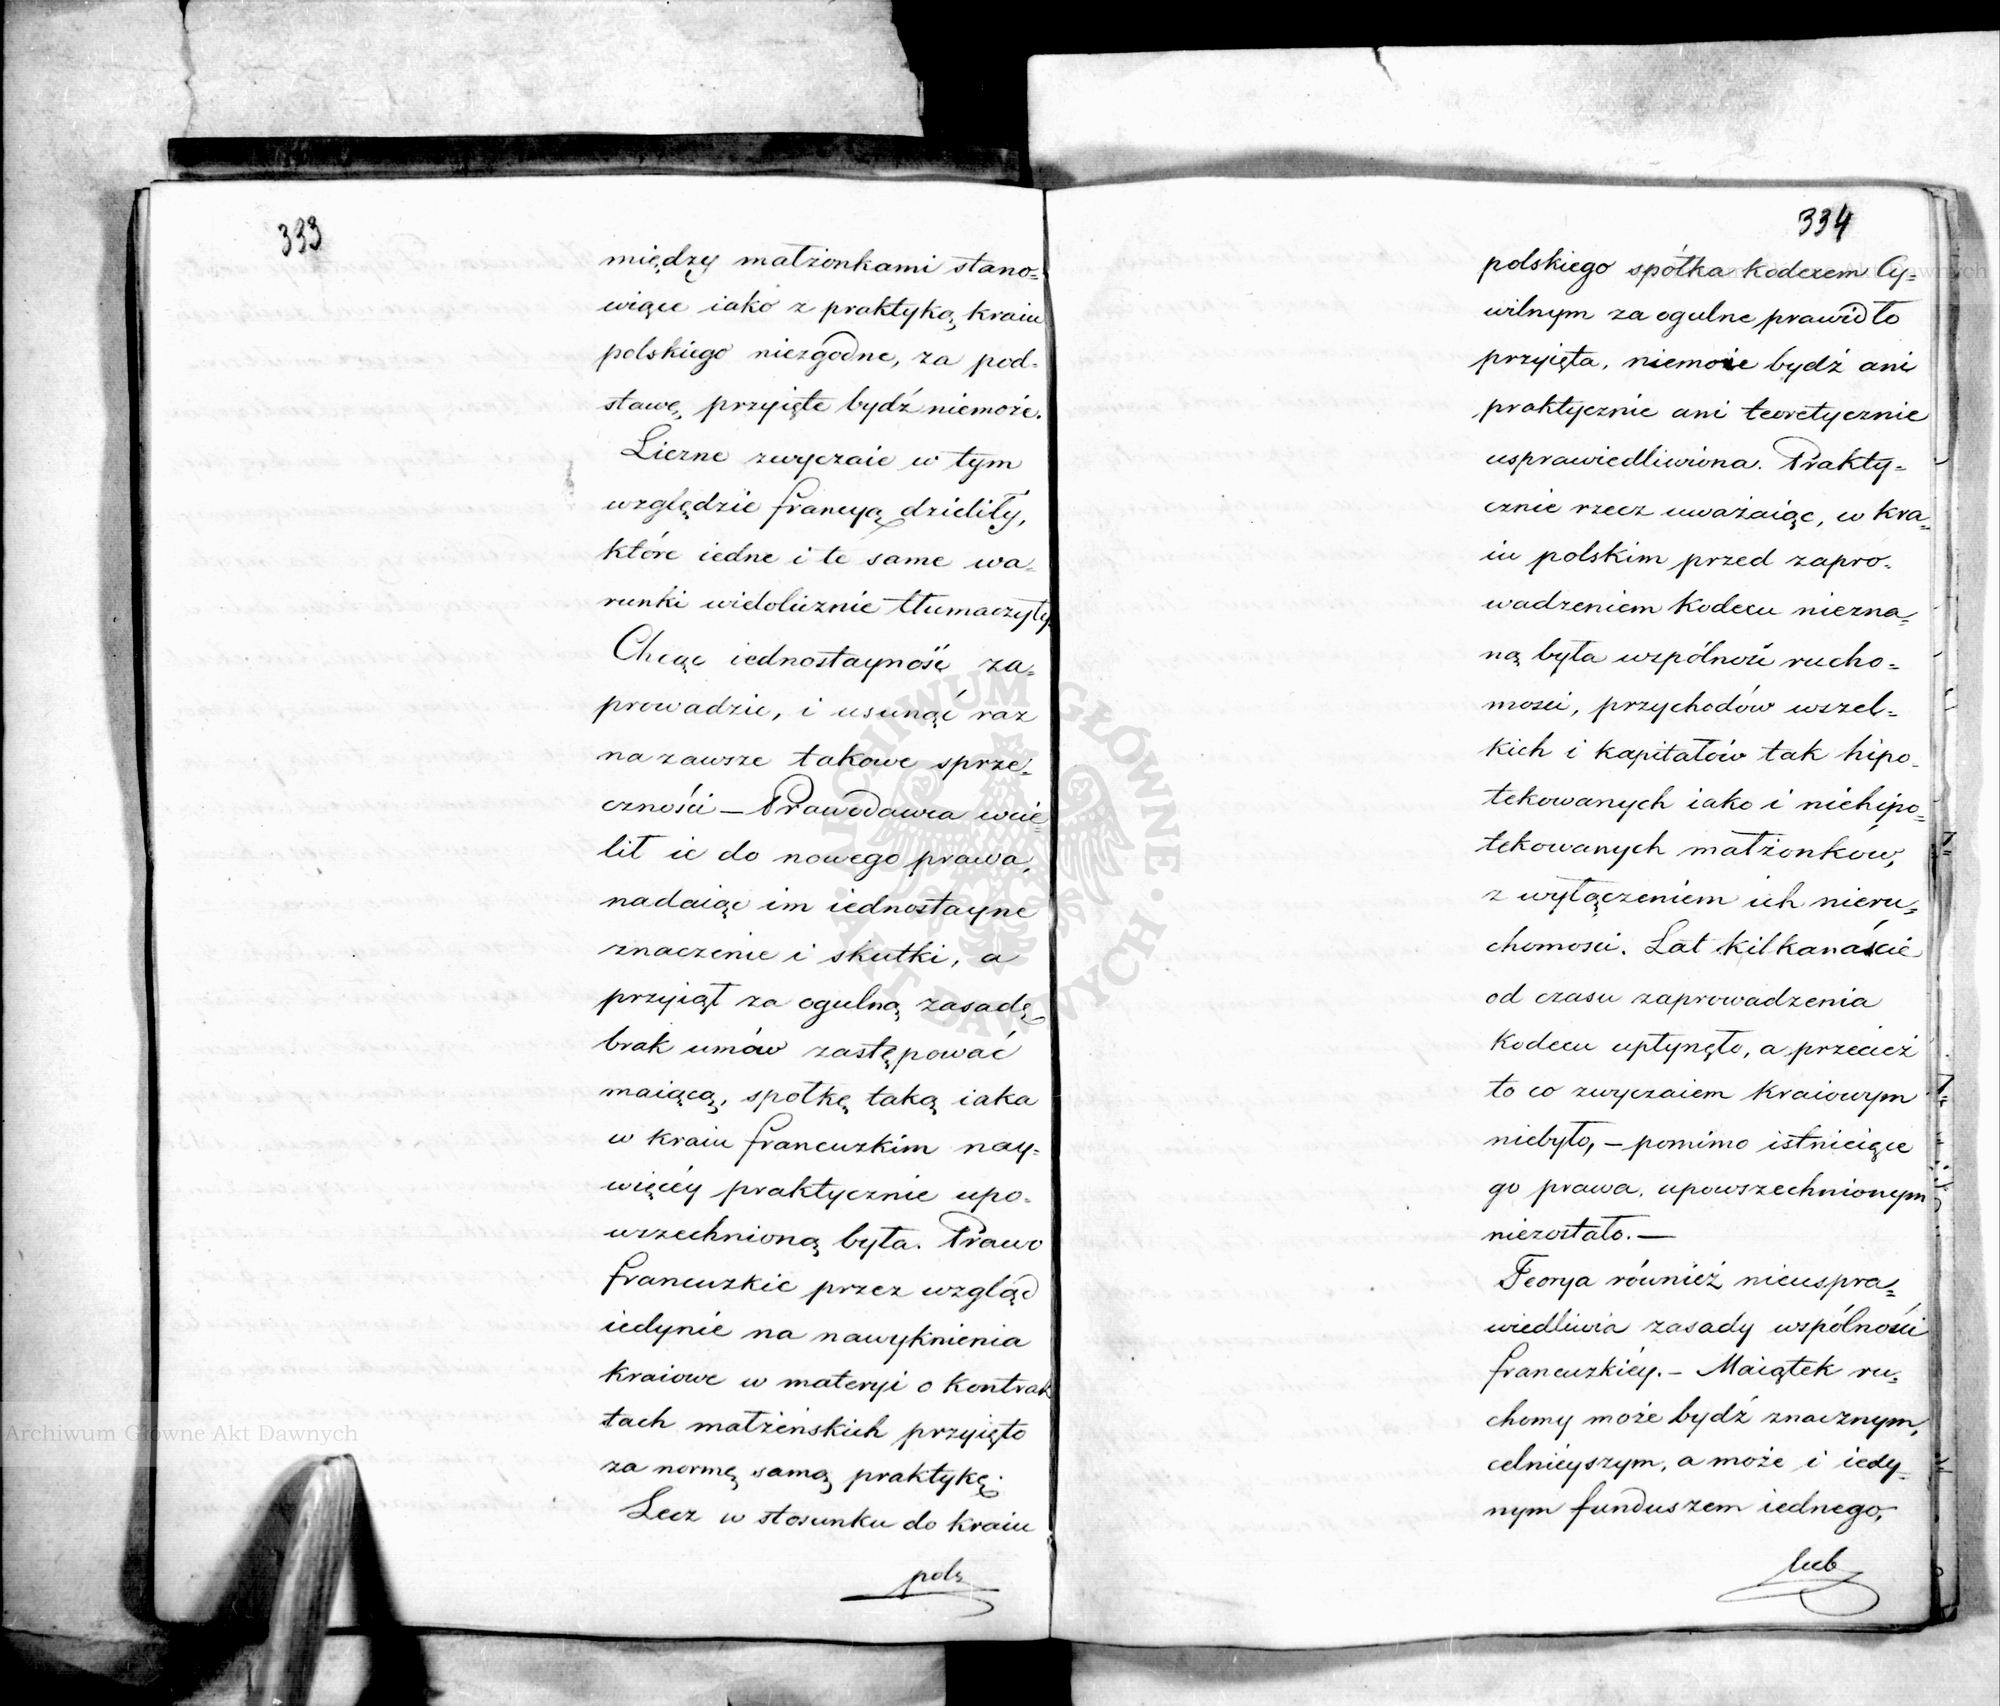 333
między małżonkami stano=
wiące iako z praktyką kraiu
polskiego niezgodne, za pod=
stawę przyięte bydź niemoże.
Liczne zwyczaie w tym
względzie francyą dzieliły,
które iedne i te same wa=
runki wielolicznie tłumaczyły
Chcąc iednostayność za=
prowadzić, i usunąć raz
na zawsze takowe sprze=
czności — Prawodawca wcie=
lił ie do nowego prawa,
nadaiąc im iednostayne
znaczenie i skutki, a
przyiął za ogulną zasadę
brak umów zastępować
maiącą, spółkę taką iaka
w kraiu francuzkim nay=
więcéy praktycznie upo=
wszechnioną była. Prawo
francuzkie przez wzgląd
iedynie na nawyknienia
kraiowe w materyi o kontrak
tach małżeńskich przyięto
za normę samą praktykę.
Lecz w stosunku do kraiu
pols
334
polskiego spółka kodexem Cy=
wilnym za ogulne prawidło
przyięta, niemoże bydź ani
praktycznie ani teoretycznie
usprawiedliwiona. Prakty=
cznie rzecz uważaiąc, w kra=
iu polskim przed zapro=
wadzeniem kodexu niezna=
ną była wspólność rucho=
mości, przychodów wszel=
kich i kapitałów tak hipo=
tekowanych iako i niehipo=
tekowanych małżonków,
z wyłączeniem ich nieru=
chomości. Lat kilkanaście
od czasu zaprowadzenia
kodexu upłynęło, a przecież
to co zwyczaiem kraiowym
niebyło, — pomimo istnieiące
go prawa, upowszechnionym
niezostało. —
Teorya również nieuspra=
wiedliwia zasady wspólności
francuzkiéy. — Maiątek ru=
chomy może bydź znacznym,
celnieyszym, a może i iedy=
nym funduszem iednego,
lub
Archiwum Główne Akt Dawnych
ARCHIWUM GŁÓWNE AKT DAWNYCH